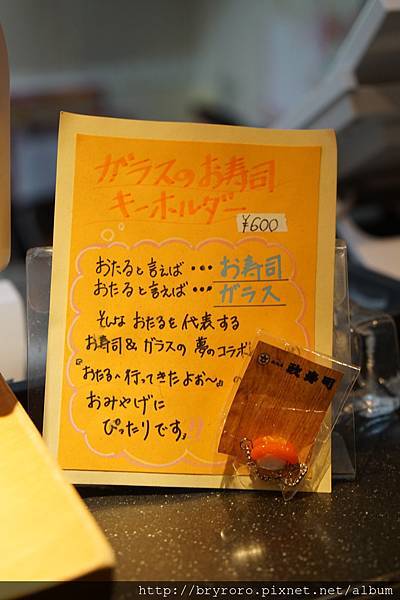 ガラスのお寿司
キーホルダー
¥600
おたると言えば・・・お寿司
おたると言えば・・・ガラス
そんな おたるを代表する
お寿司&ガラスの 夢のコラボ
『おたるへ行ってきたよぉ〜』の
おみやげに
ぴったりです!!
政寿司
http://bryroro.pixnet.net/album